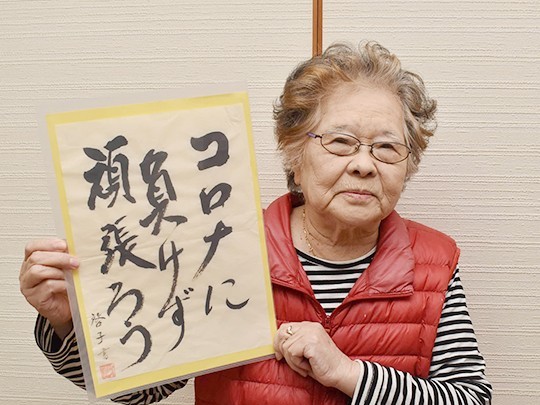 コロナに
負けず
頑張ろう
啓子書